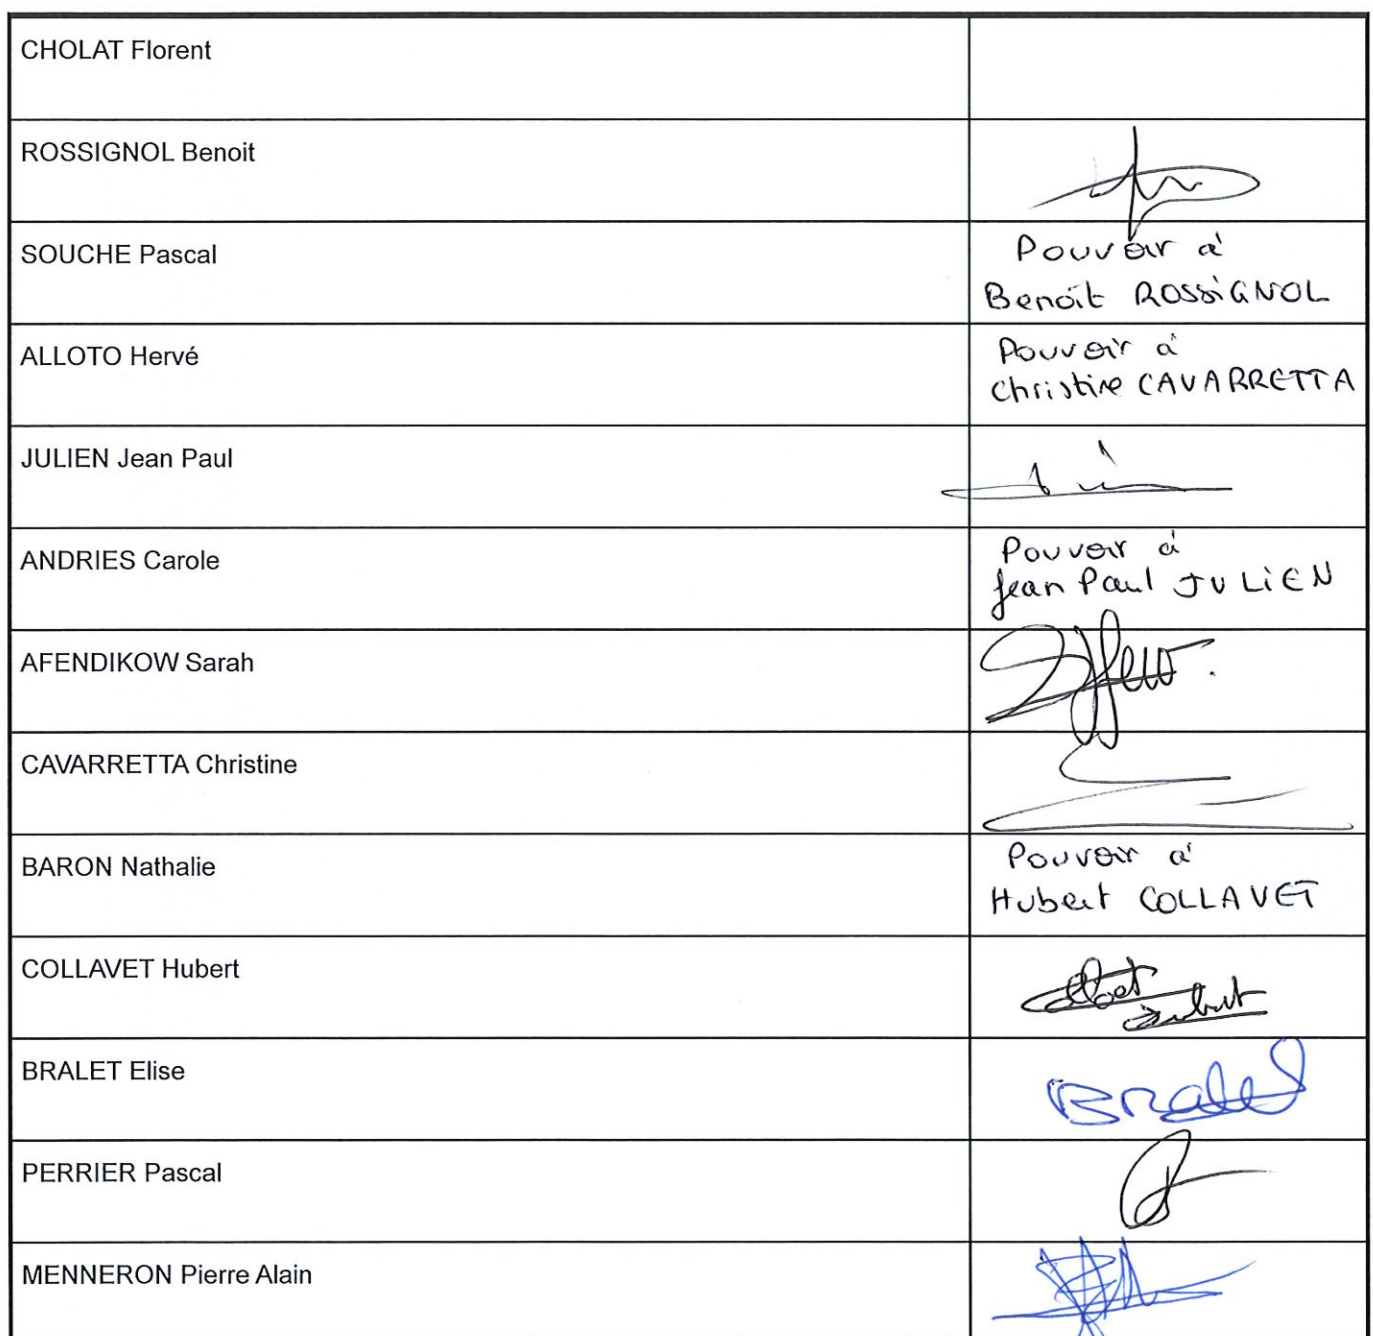 CHOLAT Florent
ROSSIGNOL Benoit
SOUCHE Pascal
Pouvoir à
Benoît ROSSIGNOL
ALLOTO Hervé
Pouvoir à
Christine CAVARRETTA
JULIEN Jean Paul
ANDRIES Carole
Pouvoir à
Jean Paul JULIEN
AFENDIKOW Sarah
CAVARRETTA Christine
BARON Nathalie
Pouvoir à
Hubert COLLAVET
COLLAVET Hubert
BRALET Elise
Bralet
PERRIER Pascal
MENNERON Pierre Alain